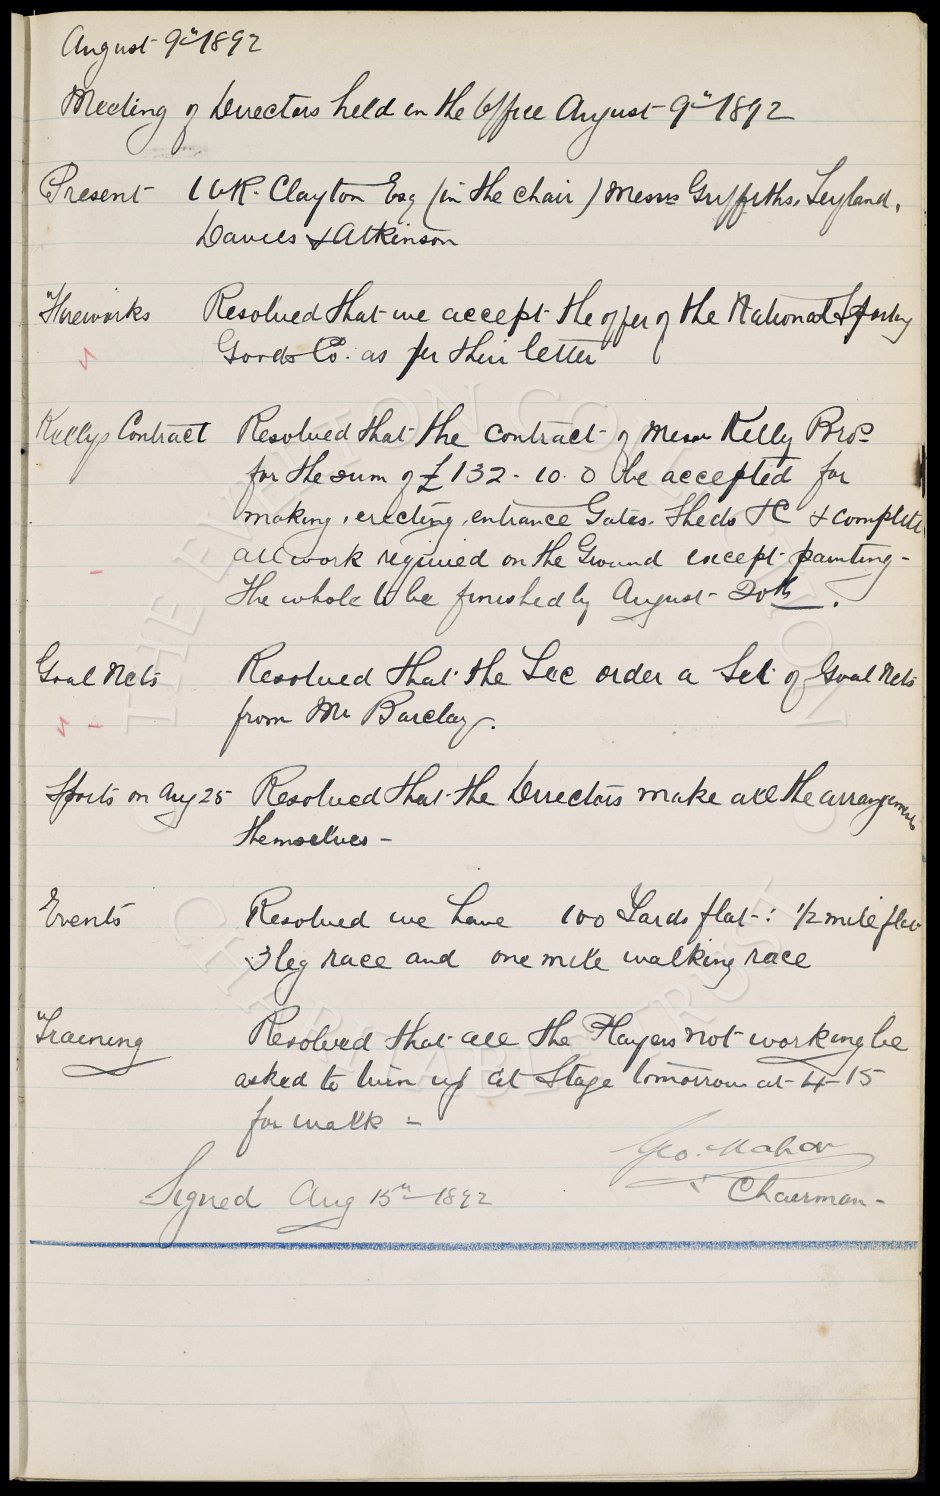 August 9th 1892
Meeting of Directors held in the Office August 9th 1892
Present W.R. Clayton Esq (in the chair) Messrs Griffiths, Leyland,
Davies & Atkinson
Fireworks Resolved that we accept the offer of the National Sporting
Goods Co. as per their letter
Kellys Contract Resolved that the contract of Messrs Kelly Bros
for the sum of £132-10-0 be accepted for
making, erecting, entrance Gates, Sheds &C & complete
all work required on the Ground except painting -
The whole to be finished by August 20th.
Goal Nets Resolved that the Sec order a Set of Goal Nets
from Mr Barclay.
Sports on Aug 25 Resolved that the Directors make all the arrangements
themselves -
Events Resolved we have 100 Yards flat : 1/2 mile flat
3 leg race and one mile walking race
Training Resolved that all the Players not working be
asked to turn up at Stage tomorrow at 4-15
for walk -
Geo. Mahon
Signed Aug 15th 1892 Chairman -
THE EVERTON COLLECTION
CHARITABLE TRUST